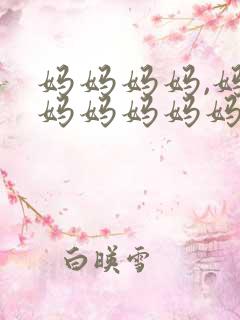 妈妈妈妈,妈
妈妈妈妈妈
白暎雪